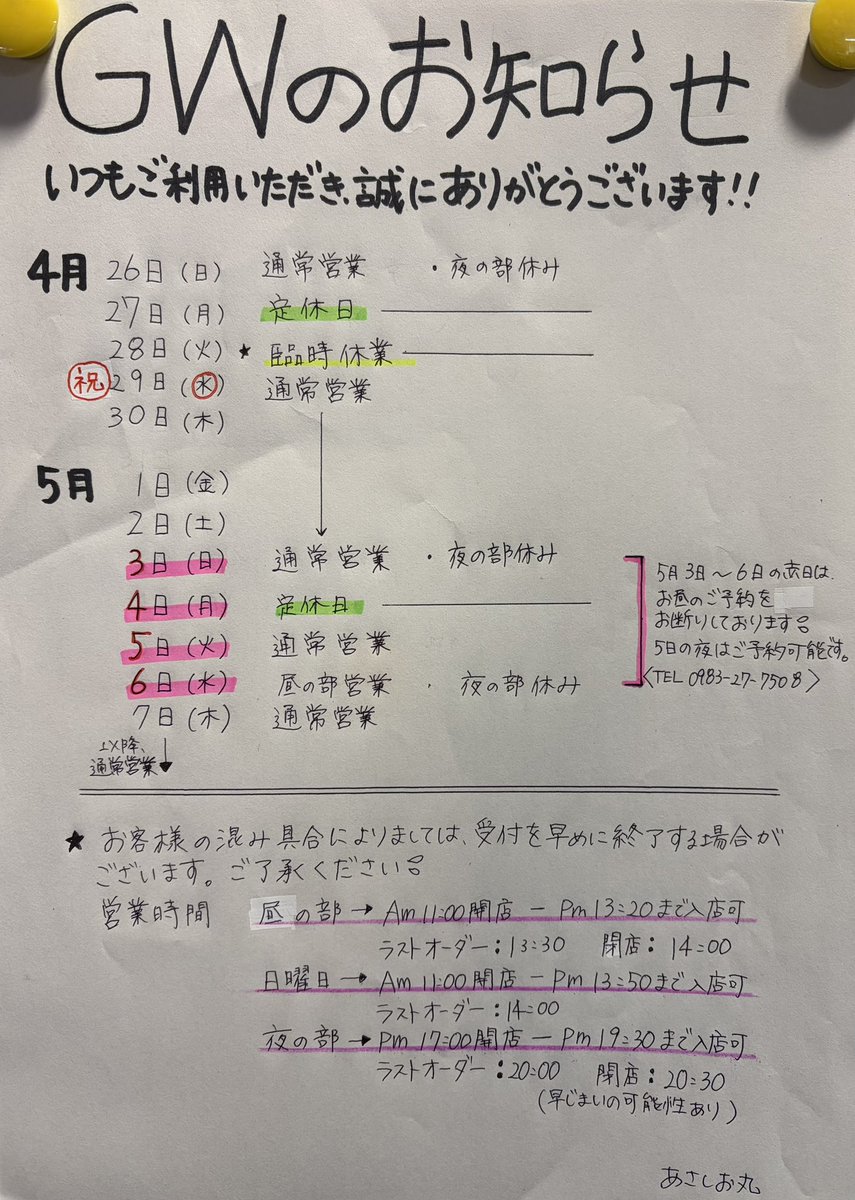 GWのお知らせ
いつもご利用いただき、誠にありがとうございます!!
4月 26日(日) 通常営業 ・夜の部休み
27日(月) 定休日
28日(火) ★ 臨時休業
祝 29日(水) 通常営業
30日(木)
5月 1日(金)
2日(土)
3日(日) 通常営業 ・夜の部休み
4日(月) 定休日
5日(火) 通常営業
6日(水) 昼の部営業 ・夜の部休み
7日(木) 通常営業
以降、
通常営業
5月3日〜6日の
お昼のご予約を
お断りしております。
5日の夜はご予約可能です。
〈TEL 0983-27-7508〉
★ お客様の混み具合によりましては、受付を早めに終了する場合が
ございます。ご了承ください。
営業時間 昼の部→ Am 11:00開店 ー Pm 13:20まで入店可
ラストオーダー:13:30 閉店:14:00
日曜日→ Am 11:00開店 ー Pm 13:50まで入店可
ラストオーダー:14:00
夜の部→ Pm 17:00開店 ー Pm 19:30まで入店可
ラストオーダー:20:00 閉店:20:30
(早じまいの可能性あり)
あさしお丸